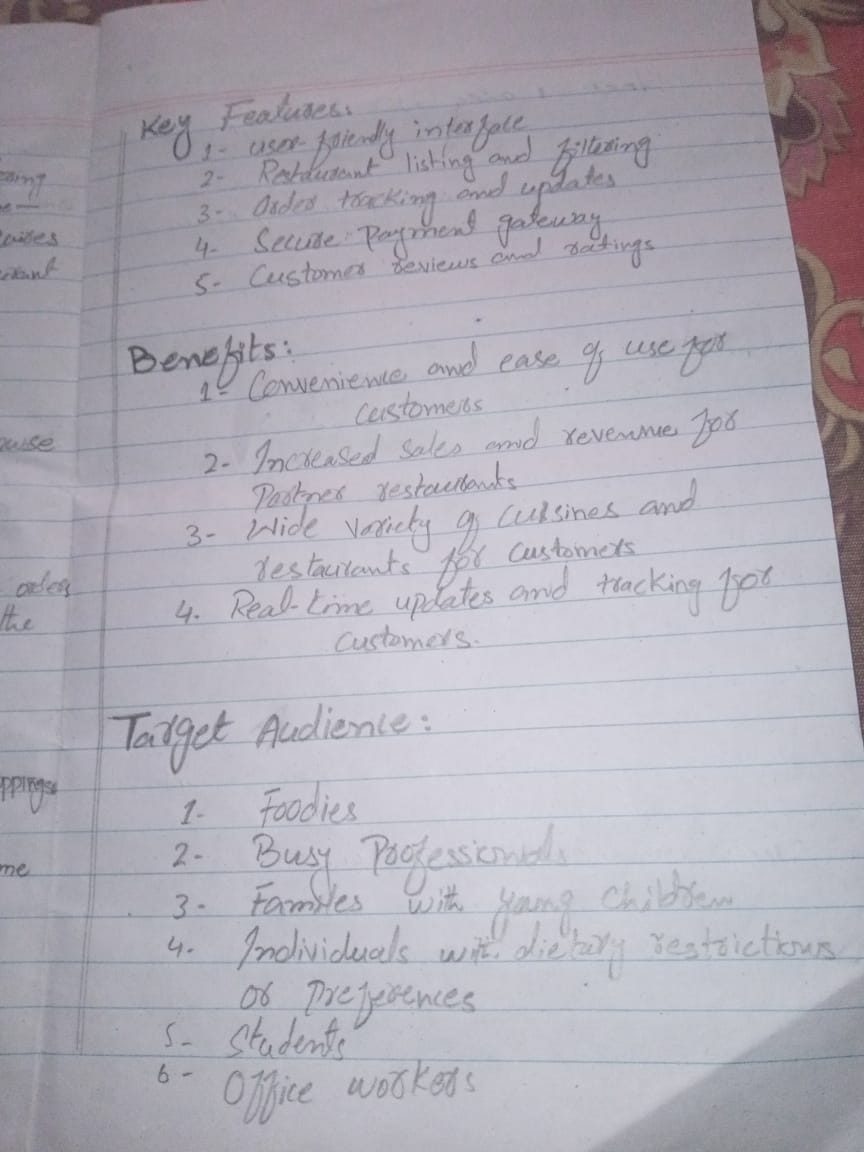 Key Features:
1- user friendly interface
2- Restaurant listing and filtering
3- Order tracking and updates
4- Secure Payment gateway
5- Customer reviews and ratings
Benefits:
1- Convenience and ease of use for
customers
2- Increased sales and revenue for
Partner restaurants
3- Wide variety of cuisines and
restaurants for customers
4. Real-time updates and tracking for
customers.
Target Audience:
1- Foodies
2- Busy Professionals
3- Families with young children
4. Individuals with dietary restrictions
or Preferences
5- Students
6- Office workers
orders
the
me